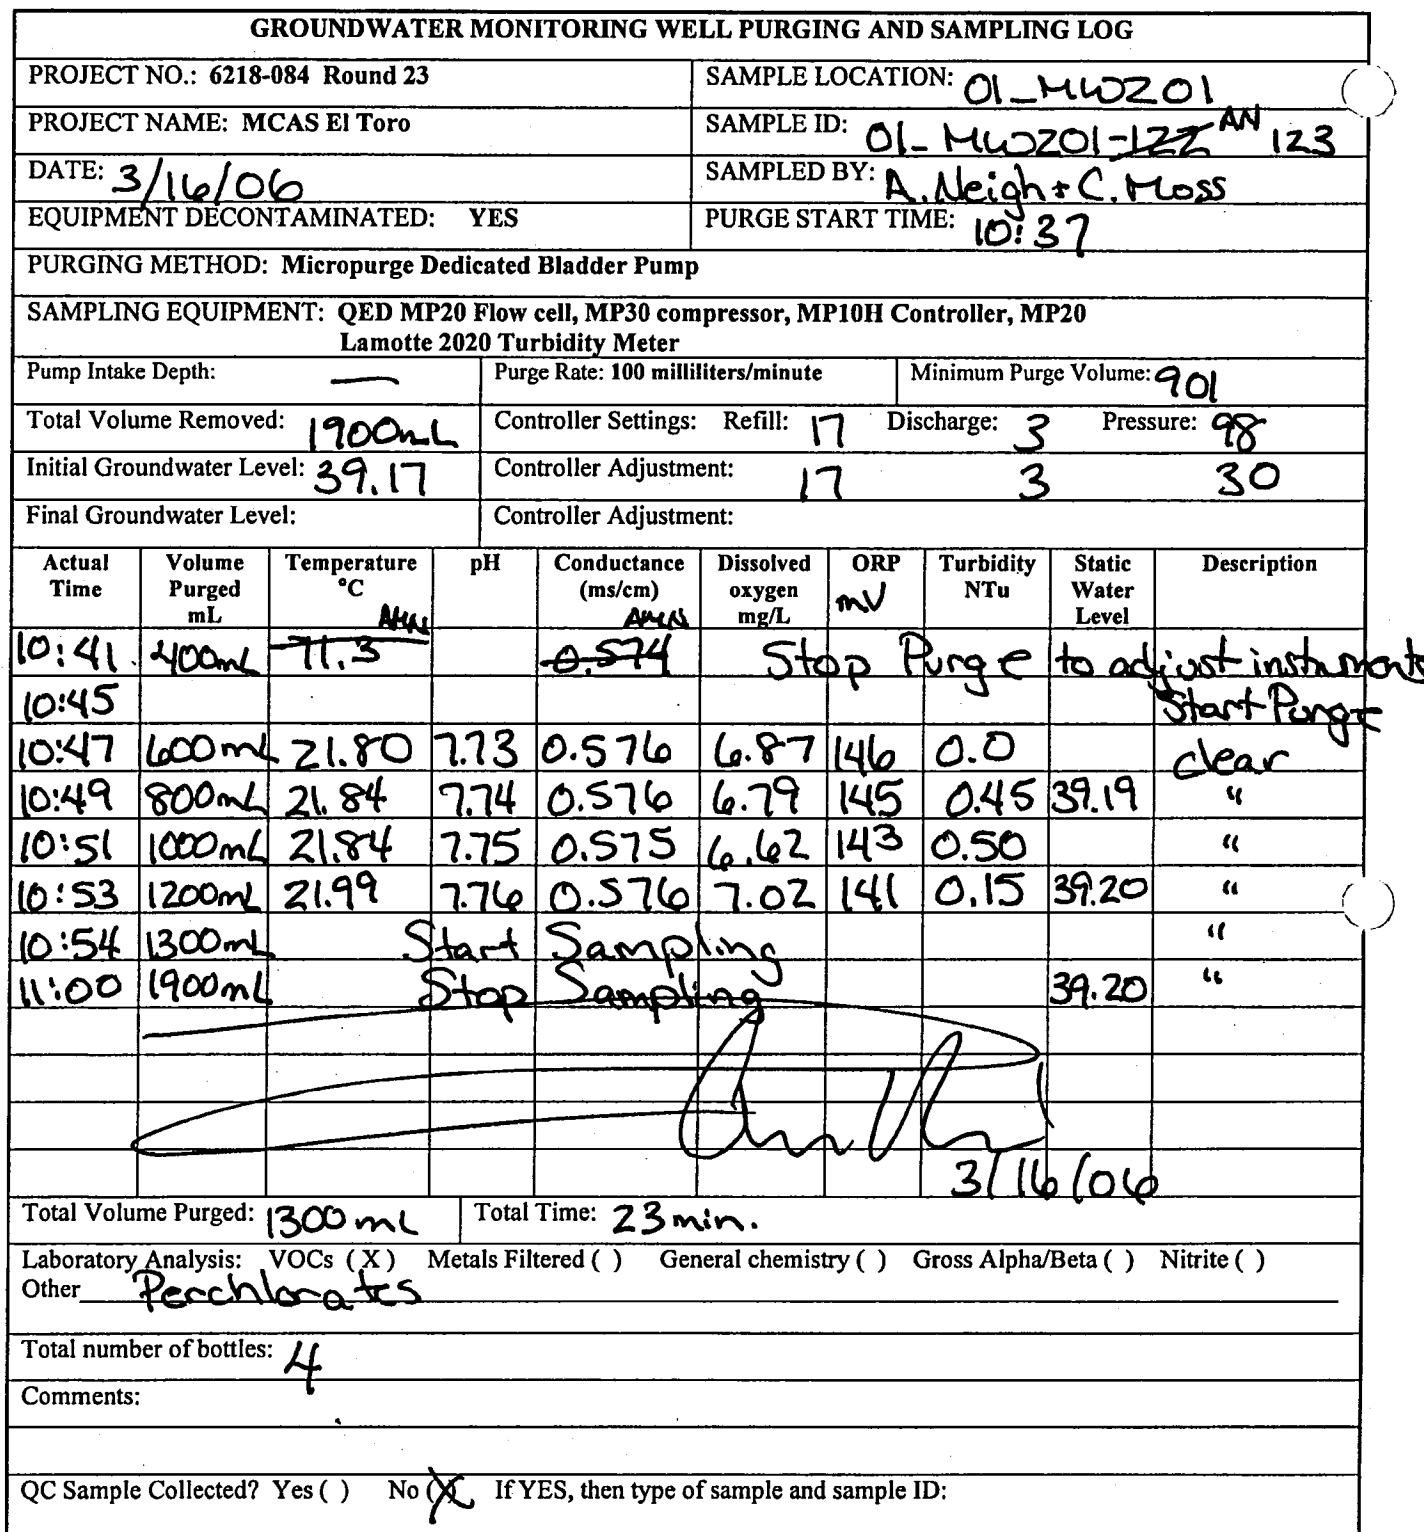 GROUNDWATER MONITORING WELL PURGING AND SAMPLING LOG
PROJECT NO.: 6218-084 Round 23 SAMPLE LOCATION: 01_MW201
PROJECT NAME: MCAS El Toro SAMPLE ID: 01_MW201-122 AN 123
DATE: 3/16/06 SAMPLED BY: A. Neigh + C. Moss
EQUIPMENT DECONTAMINATED: YES PURGE START TIME: 10:37
PURGING METHOD: Micropurge Dedicated Bladder Pump
SAMPLING EQUIPMENT: QED MP20 Flow cell, MP30 compressor, MP10H Controller, MP20
Lamotte 2020 Turbidity Meter
Pump Intake Depth: — Purge Rate: 100 milliliters/minute Minimum Purge Volume: 901
Total Volume Removed: 1900mL Controller Settings: Refill: 17 Discharge: 3 Pressure: 98
Initial Groundwater Level: 39.17 Controller Adjustment: 17 3 30
Final Groundwater Level: Controller Adjustment:
Actual Time Volume Purged mL Temperature °C pH Conductance (ms/cm) Dissolved oxygen mg/L ORP mV Turbidity NTu Static Water Level Description
10:41 400mL 71.3 AMN 0.574 AMN Stop Purge to adjust instruments
10:45 Start Purge
10:47 600mL 21.80 7.73 0.576 6.87 146 0.0 clear
10:49 800mL 21.84 7.74 0.576 6.79 145 0.45 39.19 "
10:51 1000mL 21.84 7.75 0.575 6.62 143 0.50 "
10:53 1200mL 21.99 7.76 0.576 7.02 141 0.15 39.20 "
10:54 1300mL Start Sampling "
11:00 1900mL Stop Sampling 39.20 "
3/16/06
Total Volume Purged: 1300mL Total Time: 23 min.
Laboratory Analysis: VOCs ( X ) Metals Filtered ( ) General chemistry ( ) Gross Alpha/Beta ( ) Nitrite ( )
Other Perchlorates
Total number of bottles: 4
Comments:
QC Sample Collected? Yes ( ) No (X) If YES, then type of sample and sample ID: